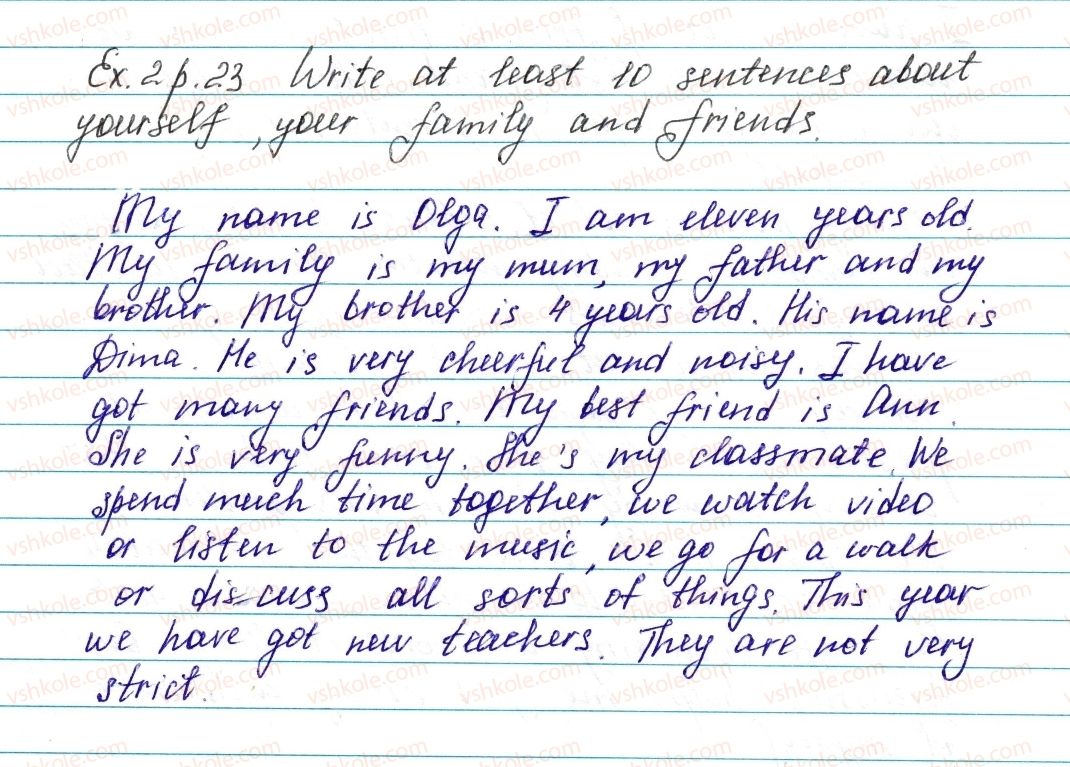 Ex. 2 p. 23 Write at least 10 sentences about
yourself, your family and friends.
My name is Olga. I am eleven years old.
My family is my mum, my father and my
brother. My brother is 4 years old. His name is
Dima. He is very cheerful and noisy. I have
got many friends. My best friend is Ann.
She is very funny. She's my classmate. We
spend much time together, we watch video
or listen to the music, we go for a walk
or discuss all sorts of things. This year
we have got new teachers. They are not very
strict.